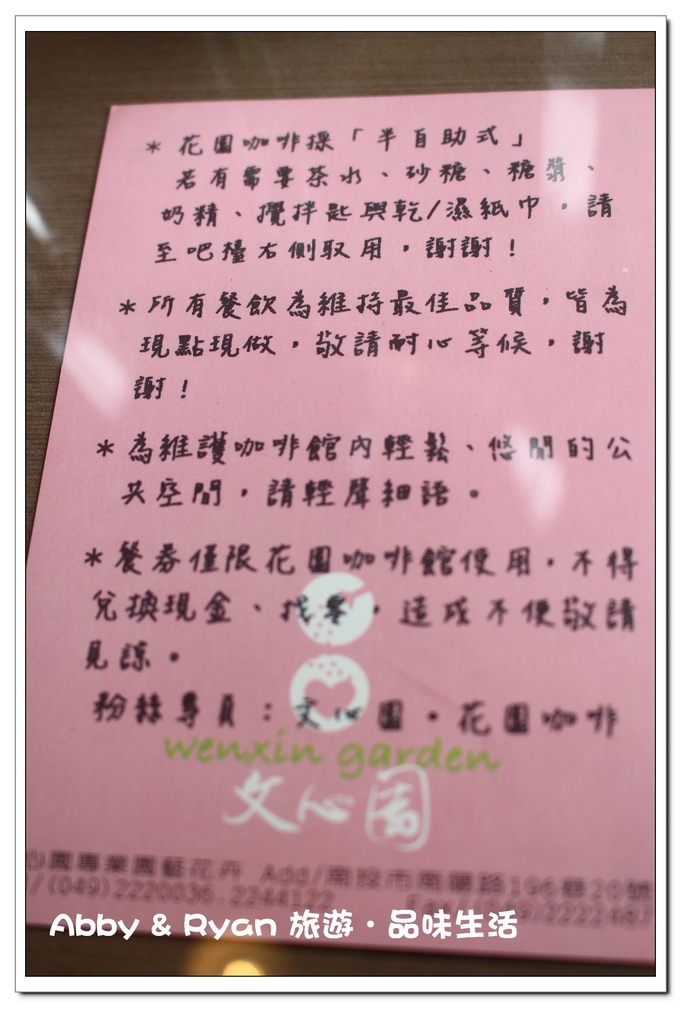 * 花園咖啡採「半自助式」
若有需要茶水、砂糖、糖漿、
奶精、攪拌匙與乾/濕紙巾，請
至吧檯右側取用，謝謝！
* 所有餐飲為維持最佳品質，皆為
現點現做，敬請耐心等候，謝
謝！
* 為維護咖啡館內輕鬆、悠閒的公
共空間，請輕聲細語。
* 餐券僅限花園咖啡館使用，不得
兌換現金、找零，造成不便敬請
見諒。
粉絲專頁：文心園・花園咖啡
wenxin garden
文心園
心園專業園藝花卉 Add/南投市南陽路196巷20號
/(049)2220036.2244122 Fax/(049)2222487
Abby & Ryan 旅遊・品味生活